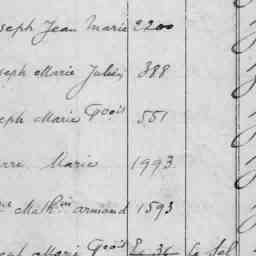 seph Jean Marie 2200
seph Marie Julien 388
eph Marie Gois 551
rre Marie 1993
Math armand 1593
Marie Gois